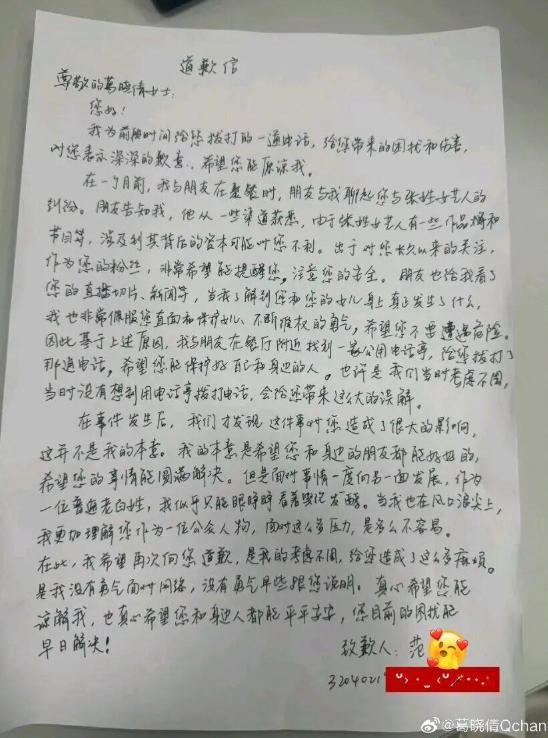 道歉信
尊敬的葛晓倩女士：
您好！
我为前段时间给您拨打的一通电话，给您带来的困扰和伤害，
对您表示深深的歉意、希望您能原谅我。
在一个月前，我与朋友在聚餐时，朋友与我聊起您与张姓女艺人的
纠纷。朋友告知我，他从一些渠道获悉，由于张姓女艺人有一些作品播和
节目等，涉及到其背后的资本可能对您不利。出于对您长久以来的关注，
作为您的粉丝，非常希望能提醒您，注意您的安全。朋友也给我看了
您的直播切片、新闻等，当我了解到您和您的女儿身上真正发生了什么，
我也非常佩服您直面和保护女儿、不断维权的勇气，希望您不要遭遇危险。
因此基于上述原因，我与朋友在餐厅附近找到一家公用电话亭，给您拨打了
那通电话，希望您能保护好自己和身边的人。也许是我们当时考虑不周，
当时没有想到用电话亭拨打电话，会给您带来这么大的误解。
在事件发生后，我们才发现这件事对您造成了很大的影响，
这并不是我的本意。我的本意是希望您和身边的朋友都能好好的，
希望您的事情能圆满解决。但是面对事情一度向另一面发展，作为
一位普通老百姓，我似乎只能眼睁睁看着舆论发酵。当我也在风口浪尖上，
我更加理解您作为一位公众人物，面对这么多压力，是多么不容易。
在此，我希望再次向您道歉，是我的考虑不周，给您造成了这么多麻烦。
是我没有勇气面对网络，没有勇气早些跟您说明。真心希望您能
谅解我，也真心希望您和身边人都能平平安安，您目前的困扰能
早日解决！
致歉人：范
3204021
@葛晓倩Qchan